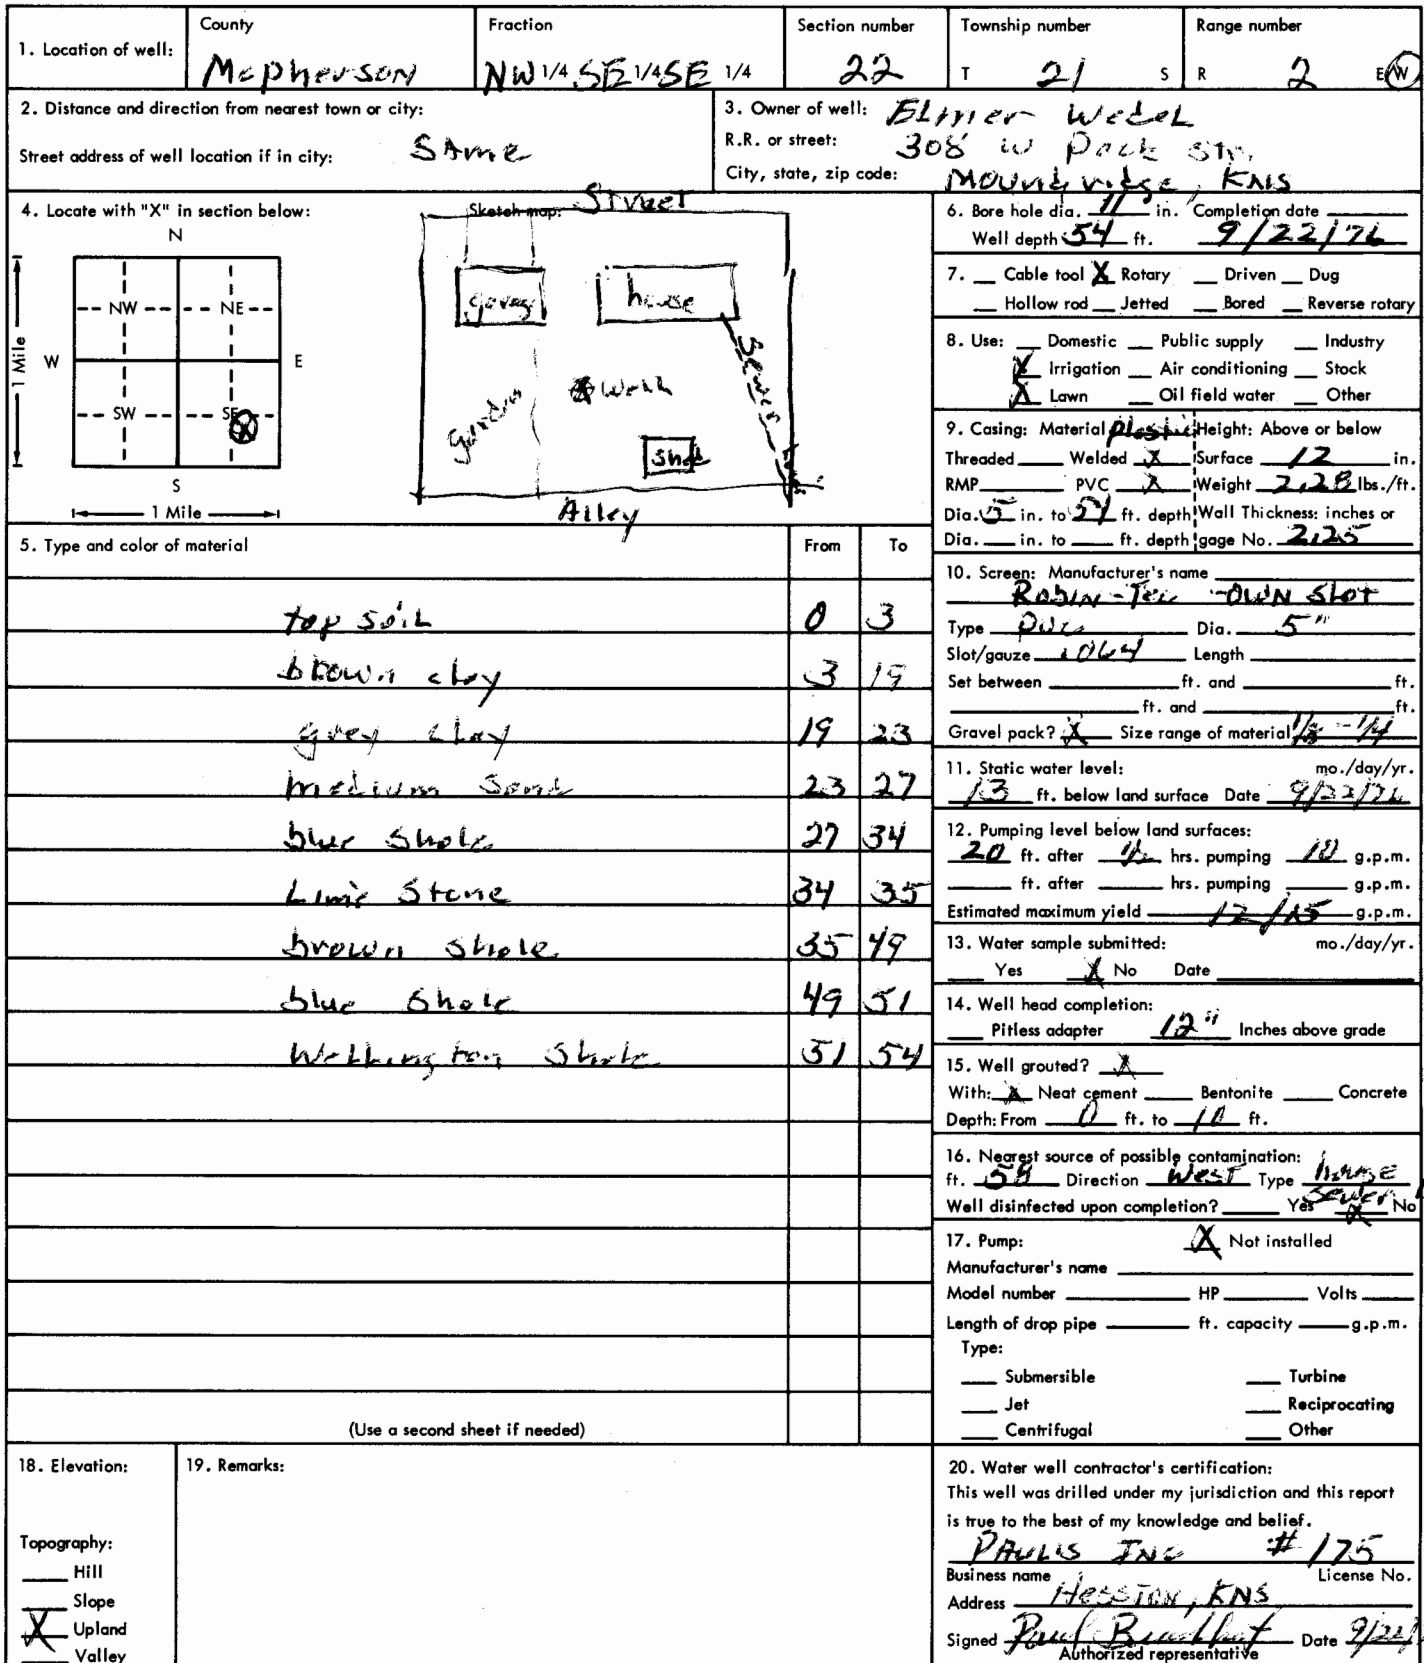 1. Location of well:
County
McPherson
Fraction
NW 1/4 SE 1/4 SE 1/4
Section number
22
Township number
T 21 S
Range number
R 2 E W
2. Distance and direction from nearest town or city:
Street address of well location if in city: Same
3. Owner of well: Elmer Wedel
R.R. or street: 308 W Pack Str.
City, state, zip code: Moundridge, KNS
4. Locate with "X" in section below:
N
NW NE
W E
SW SE
S
1 Mile
1 Mile
Sketch map:
Street
garage house
Sewer
garden
Well
Shed
Alley
5. Type and color of material From To
top soil 0 3
brown clay 3 19
grey clay 19 23
medium Sand 23 27
blue Shale 27 34
Lime Stone 34 35
brown Shale 35 49
blue Shale 49 51
Wellington Shale 51 54
(Use a second sheet if needed)
6. Bore hole dia. 11 in. Completion date
Well depth 54 ft. 9/22/76
7. Cable tool X Rotary Driven Dug
Hollow rod Jetted Bored Reverse rotary
8. Use: Domestic Public supply Industry
X Irrigation Air conditioning Stock
X Lawn Oil field water Other
9. Casing: Material plastic Height: Above or below
Threaded Welded X Surface 12 in.
RMP PVC X Weight 2.28 lbs./ft.
Dia. 5 in. to 54 ft. depth Wall Thickness: inches or
Dia. in. to ft. depth gage No. 2.25
10. Screen: Manufacturer's name
Robin-Tec -OWN Slot
Type PVC Dia. 5"
Slot/gauze .064 Length
Set between ft. and ft.
ft. and ft.
Gravel pack? X Size range of material 1/8 - 1/4
11. Static water level: mo./day/yr.
13 ft. below land surface Date 9/22/76
12. Pumping level below land surfaces:
20 ft. after 1/2 hrs. pumping 10 g.p.m.
ft. after hrs. pumping g.p.m.
Estimated maximum yield 12/15 g.p.m.
13. Water sample submitted: mo./day/yr.
Yes X No Date
14. Well head completion:
Pitless adapter 12" Inches above grade
15. Well grouted? X
With: X Neat cement Bentonite Concrete
Depth: From 0 ft. to 10 ft.
16. Nearest source of possible contamination:
ft. 58 Direction West Type house
sewer
Well disinfected upon completion? Yes X No
17. Pump: X Not installed
Manufacturer's name
Model number HP Volts
Length of drop pipe ft. capacity g.p.m.
Type:
Submersible Turbine
Jet Reciprocating
Centrifugal Other
18. Elevation:
Topography:
Hill
Slope
X Upland
Valley
19. Remarks:
20. Water well contractor's certification:
This well was drilled under my jurisdiction and this report
is true to the best of my knowledge and belief.
PAULS INC # 175
Business name License No.
Address Hesston, KNS
Signed Paul Date 9/22/
Authorized representative